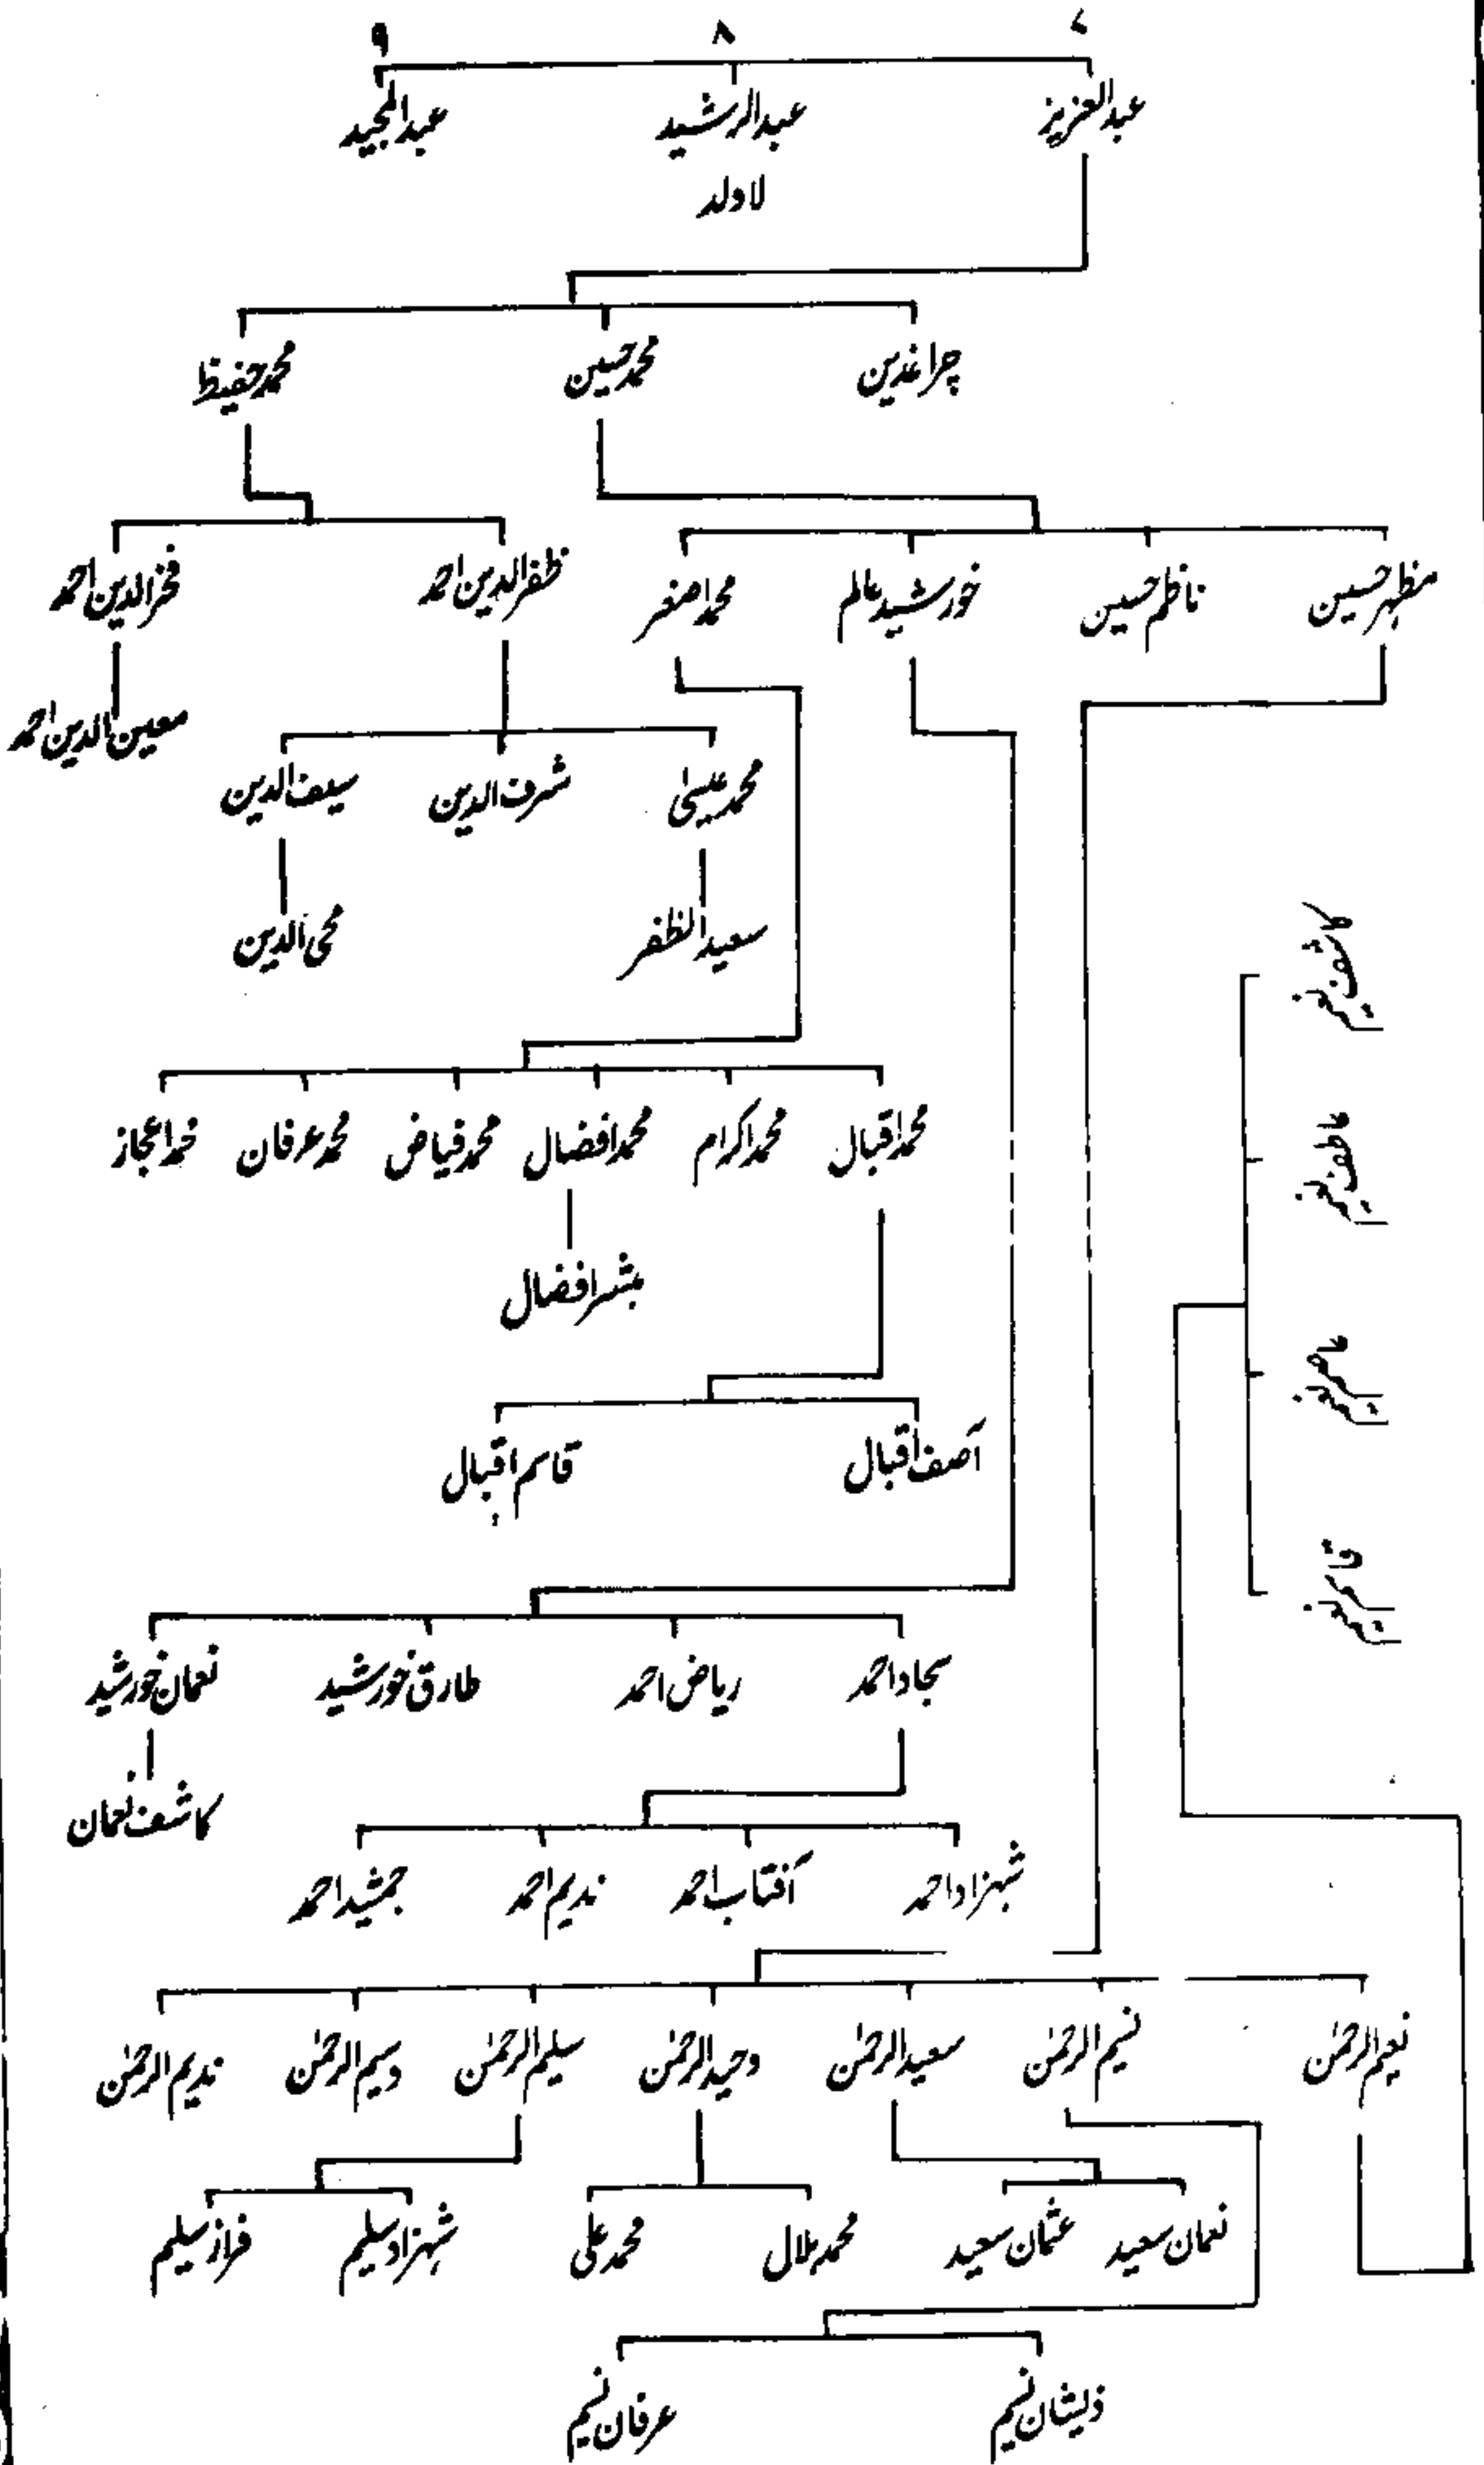 ۷ ۸ ۹
عبدالعزیز عبدالرشید عبدالمجید
لاولد
چراغدین محمد حسین محمد حفیظ
مظہر حسین ناظم حسین خورشید عالم محمد اصغر ظفرالدین احمد فخرالدین احمد
معین الدین احمد
محمد عیسیٰ شرف الدین سیف الدین
سعید الظفر محی الدین
محمد اقبال محمد اکرام محمد افضال محمد فیاض محمد عرفان محمد اعجاز
مبشر افضال
آصف اقبال قاسم اقبال
سجاد احمد ریاض احمد طارق خورشید نعمان خورشید
کاشف نعمان
شہزاد احمد آفتاب احمد ندیم احمد جمشید احمد
نعیم الرحمٰن نسیم الرحمٰن سعید الرحمٰن وحید الرحمٰن سلیم الرحمٰن وسیم الرحمٰن ندیم الرحمٰن
نعمان سعید عثمان سعید محمد بلال محمد علی شہزاد سلیم فراز سلیم
ذیشان نسیم عرفان نسیم